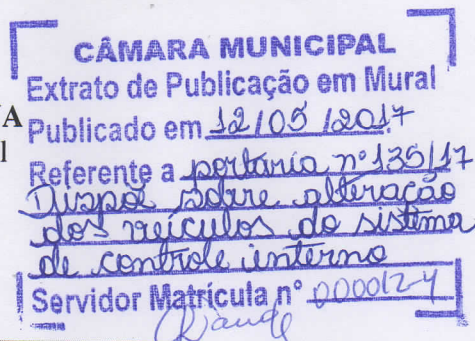 CÂMARA MUNICIPAL
Extrato de Publicação em Mural
VA
Publicado em 12/05/2017
l
Referente a portaria nº 135/17
Dispoe sobre alteração
dos veículos do sistema
de controle interno
Servidor Matrícula nº 000012-4